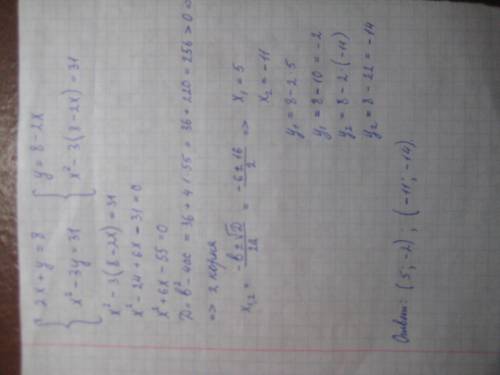 { 2x + y = 8 { y = 8 - 2x
{ x² - 3y = 31 { x² - 3(8 - 2x) = 31
x² - 3(8 - 2x) = 31
x² - 24 + 6x - 31 = 0
x² + 6x - 55 = 0
D = b² - 4ac = 36 + 4·55 = 36 + 220 = 256 > 0 =>
=> 2 корня
x₁,₂ = (-b ± √D)/2a = (-6 ± 16)/2 => x₁ = 5
x₂ = -11
y₁ = 8 - 2·5
y₁ = 8 - 10 = -2
y₂ = 8 - 2·(-11)
y₂ = 8 - 22 = -14
Ответ: (5; -2); (-11; -14).